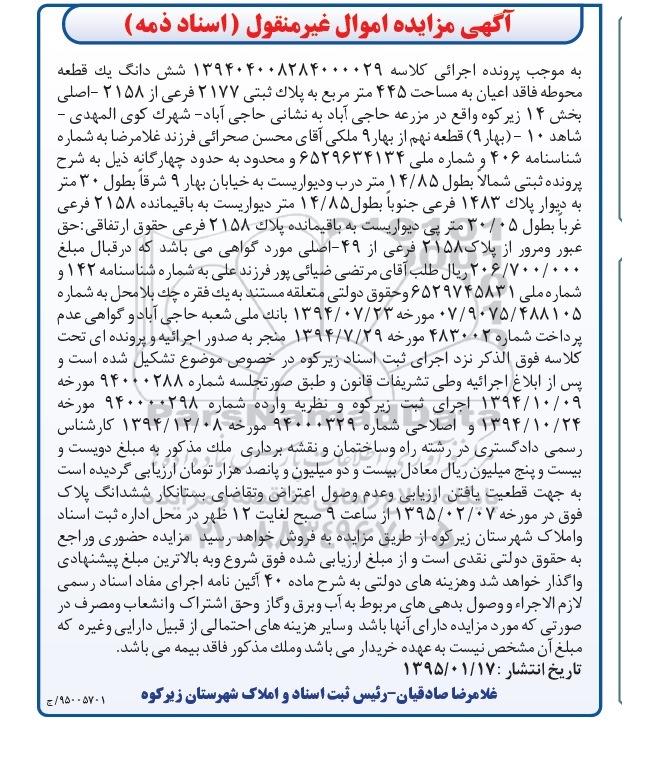 آگهی مزایده اموال غیرمنقول (اسناد ذمه)
به موجب پرونده اجرائی کلاسه ۱۳۹۴۰۴۰۰۸۲۸۴۰۰۰۰۲۹ شش دانگ یك قطعه
محوطه فاقد اعیان به مساحت ۴۴۵ متر مربع به پلاك ثبتی ۲۱۷۷ فرعی از ۲۱۵۸ -اصلی
بخش ۱۴ زیرکوه واقع در مزرعه حاجی آباد به نشانی حاجی آباد- شهرك کوی المهدی -
شاهد ۱۰ -(بهار۹) قطعه نهم از بهار۹ ملکی آقای محسن صحرائی فرزند غلامرضا به شماره
شناسنامه ۴۰۶ و شماره ملی ۶۵۲۹۶۳۴۱۳۴ و محدود به حدود چهارگانه ذیل به شرح
پرونده ثبتی شمالاً بطول ۱۴/۸۵ متر درب ودیواریست به خیابان بهار ۹ شرقاً بطول ۳۰ متر
به دیوار پلاك ۱۴۸۳ فرعی جنوباً بطول۱۴/۸۵ متر دیواریست به باقیمانده ۲۱۵۸ فرعی
غرباً بطول ۳۰/۰۵ متر پی دیواریست به باقیمانده پلاك ۲۱۵۸ فرعی حقوق ارتفاقی:حق
عبور ومرور از پلاک۲۱۵۸ فرعی از ۴۹-اصلی مورد گواهی می باشد که درقبال مبلغ
۲۰۶/۷۰۰/۰۰۰ریال طلب آقای مرتضی ضیائی پور فرزند علی به شماره شناسنامه ۱۴۲ و
شماره ملی ۶۵۲۹۷۴۵۸۳۱ وحقوق دولتی متعلقه مستند به یك فقره چك بلامحل به شماره
۰۷/۹۰۷۵/۴۸۸۱۰۵ مورخه ۱۳۹۴/۰۷/۲۳ بانك ملی شعبه حاجی آباد و گواهی عدم
پرداخت شماره ۴۸۳۰۰۲ مورخه ۱۳۹۴/۷/۲۹ منجر به صدور اجرائیه و پرونده ای تحت
کلاسه فوق الذکر نزد اجرای ثبت اسناد زیرکوه در خصوص موضوع تشکیل شده است و
پس از ابلاغ اجرائیه وطی تشریفات قانون و طبق صورتجلسه شماره ۹۴۰۰۰۲۸۸ مورخه
۱۳۹۴/۱۰/۰۹ اجرای ثبت زیرکوه و نظریه وارده شماره ۹۴۰۰۰۰۲۹۸ مورخه
۱۳۹۴/۱۰/۲۴ و اصلاحی شماره ۹۴۰۰۰۳۲۹ مورخه ۱۳۹۴/۱۲/۰۸ کارشناس
رسمی دادگستری در رشته راه وساختمان و نقشه برداری ملك مذکور به مبلغ دویست و
بیست و پنج میلیون ریال معادل بیست و دو میلیون و پانصد هزار تومان ارزیابی گردیده است
به جهت قطعیت یافتن ارزیابی وعدم وصول اعتراض وتقاضای بستانکار ششدانگ پلاک
فوق در مورخه ۱۳۹۵/۰۲/۰۷ از ساعت ۹ صبح لغایت ۱۲ ظهر در محل اداره ثبت اسناد
واملاک شهرستان زیرکوه از طریق مزایده به فروش خواهد رسید مزایده حضوری وراجع
به حقوق دولتی نقدی است و از مبلغ ارزیابی شده فوق شروع وبه بالاترین مبلغ پیشنهادی
واگذار خواهد شد وهزینه های دولتی به شرح ماده ۴۰ آئین نامه اجرای مفاد اسناد رسمی
لازم الاجراء و وصول بدهی های مربوط به آب وبرق وگاز وحق اشتراک وانشعاب ومصرف در
صورتی که مورد مزایده دارای آنها باشد وسایر هزینه های احتمالی از قبیل دارایی وغیره که
مبلغ آن مشخص نیست به عهده خریدار می باشد وملك مذکور فاقد بیمه می باشد.
تاریخ انتشار :۱۳۹۵/۰۱/۱۷
غلامرضا صادقیان-رئیس ثبت اسناد و املاک شهرستان زیرکوه
۹۵۰۰۵۷۰۱/ج
ParsNamadData
۰۲۱-۸۸۳۴۹۶۷۰-۵